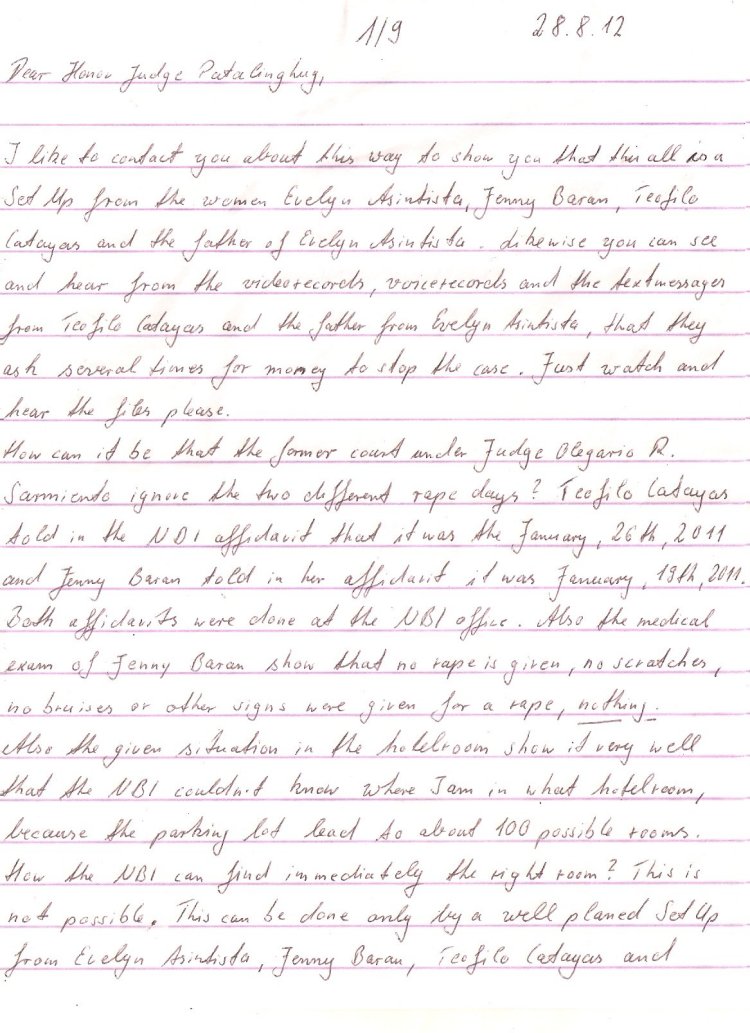 1/9 28.8.12
Dear Honor Judge Patalinghug,
I like to contact you about this way to show you that this all is a
Set Up from the women Evelyn Asintista, Jenny Baran, Teofilo
Catayas and the father of Evelyn Asintista. Likewise you can see
and hear from the videorecords, voicerecords and the textmessages
from Teofilo Catayas and the father from Evelyn Asintista, that they
ask several times for money to stop the case. Just watch and
hear the files please.
How can it be that the former court under Judge Olegario R.
Sarmiento ignore the two different rape days? Teofilo Catayas
told in the NBI affidavit that it was the January, 26th, 2011
and Jenny Baran told in her affidavit it was January, 19th, 2011.
Both affidavits were done at the NBI office. Also the medical
exam of Jenny Baran show that no rape is given, no scratches,
no bruises or other signs were given for a rape, nothing.
Also the given situation in the hotelroom show it very well
that the NBI couldn't know where I am in what hotelroom,
because the parking lot lead to about 100 possible rooms.
How the NBI can find immediately the right room? This is
not possible. This can be done only by a well planed Set Up
from Evelyn Asintista, Jenny Baran, Teofilo Catayas and